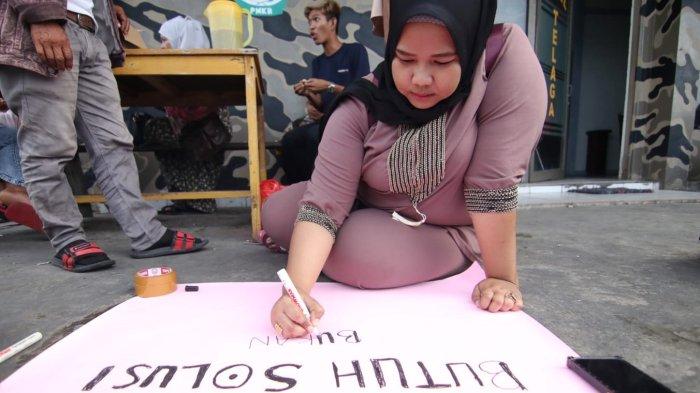 PMKR
TELAGA
BUTUH SOLUSI
BUKAN